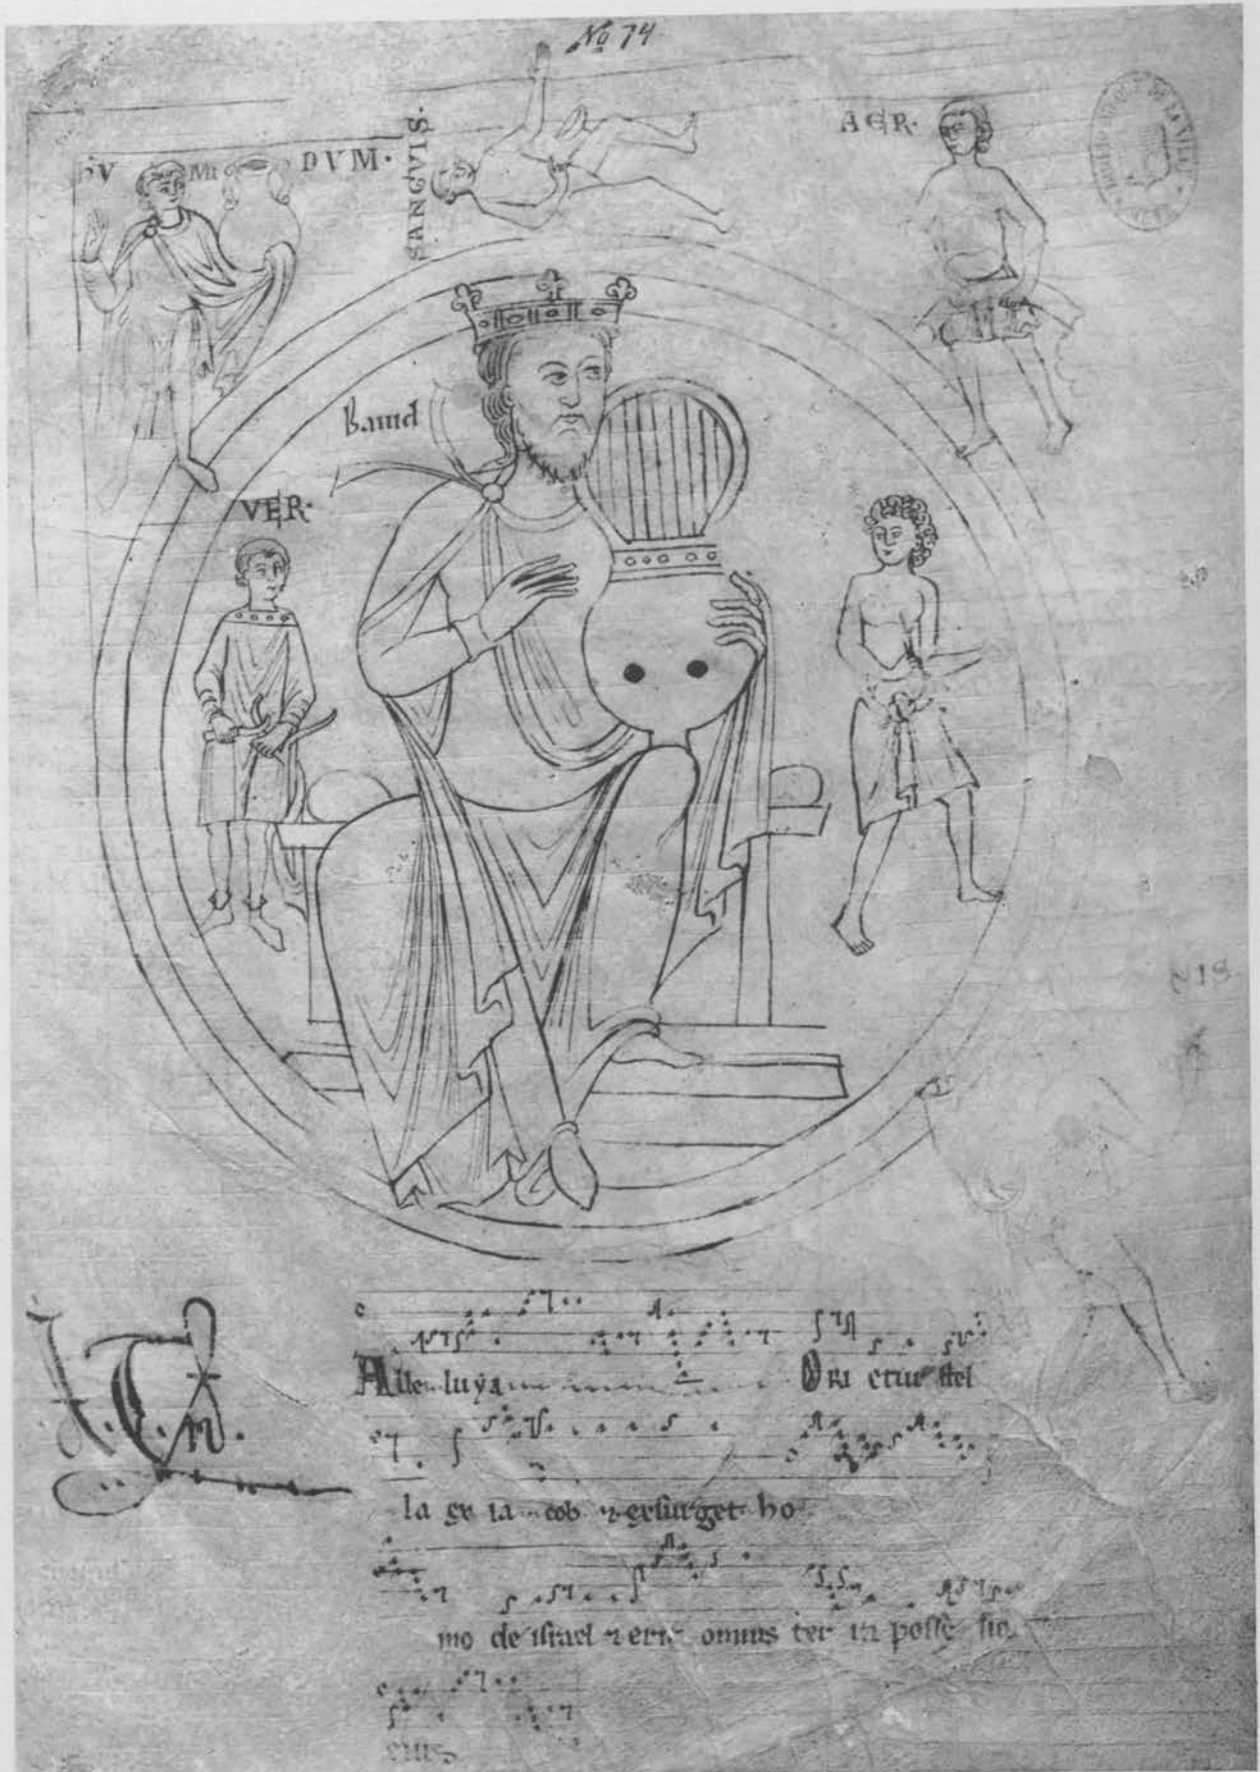 No 74
HV MI DVM·
SANGVIS·
AER·
Dauid
VER·
NIS
Alle luya Ori etur stel
la ex ia cob ⁊ exsurget ho
mo de israel ⁊ erit omnis ter ra posse sio
eius